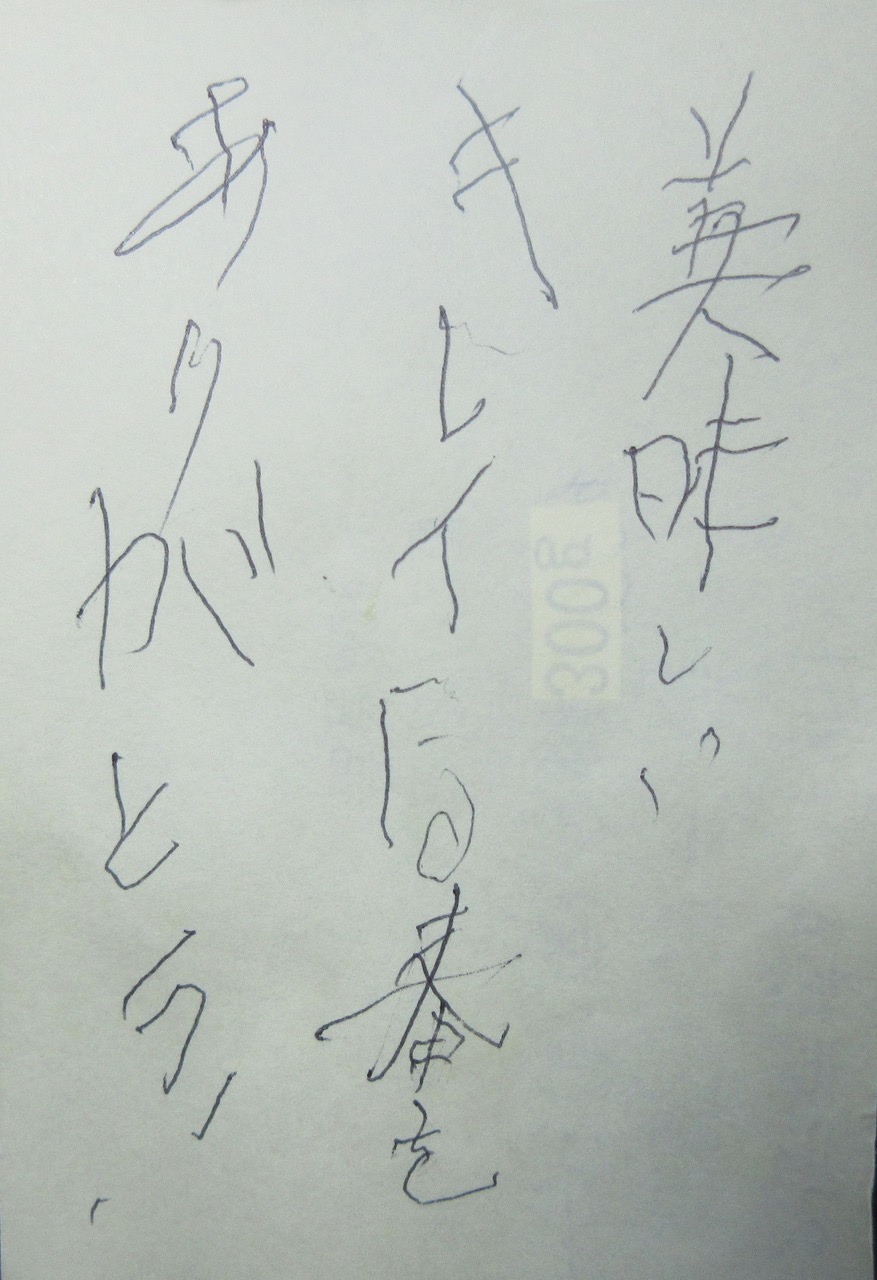 美味しい
キレイ同番を
ありがとう!
300g